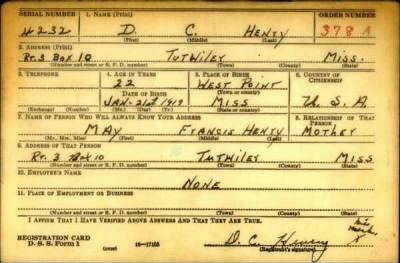 SERIAL NUMBER 1. NAME (Print) ORDER NUMBER
#232 D. C. HENRY 378 A
(First) (Middle) (Last)
2. ADDRESS (Print)
Rt. 3 BOX 10 TUTWILEY MISS.
(Number and street or R. F. D. number) (Town) (County) (State)
3. TELEPHONE 4. AGE IN YEARS 5. PLACE OF BIRTH 6. COUNTRY OF CITIZENSHIP
22 WEST POINT
(Town) (County)
DATE OF BIRTH
JAN. 21st 1919 MISS U. S. A
(Exchange) (Number) (Mo.) (Day) (Yr.) (State or country)
7. NAME OF PERSON WHO WILL ALWAYS KNOW YOUR ADDRESS 8. RELATIONSHIP OF THAT PERSON
MAY FRANCIS HENRY MOTHER
(Mr., Mrs., Miss) (First) (Middle) (Last)
9. ADDRESS OF THAT PERSON
Rt. 3 Box 10 TUTWILEY MISS
(Number and street or R. F. D. number) (Town) (County) (State)
10. EMPLOYER'S NAME
NONE
11. PLACE OF EMPLOYMENT OR BUSINESS
(Number and street or R. F. D. number) (Town) (County) (State)
I AFFIRM THAT I HAVE VERIFIED ABOVE ANSWERS AND THAT THEY ARE TRUE.
REGISTRATION CARD
D. S. S. Form 1 (over) 16—17105 D. C. Henry